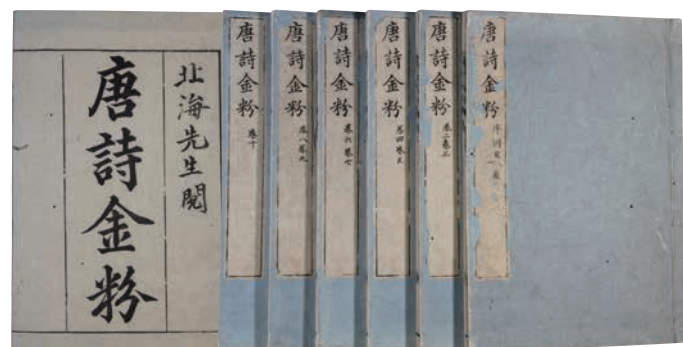 北海先生閱
唐詩金粉
唐詩金粉
卷十
唐詩金粉
卷八卷九
唐詩金粉
卷六卷七
唐詩金粉
卷四卷五
唐詩金粉
卷二卷三
唐詩金粉
序例目